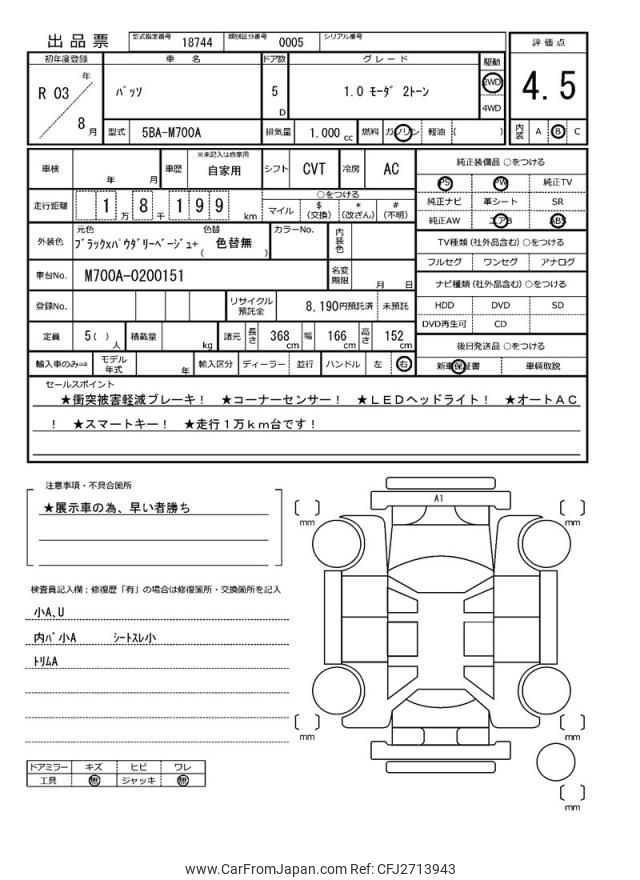 出品票 型式指定番号 18744 類別区分番号 0005 シリアル番号
初年度登録 車名 ドア数 グレード 駆動 評価点
R 03 年 8 月
パッソ 5 D 1.0 モーダ 2トーン 2WD 4WD 4.5
型式 5BA-M700A 排気量 1.000 cc 燃料 ガソリン 軽油 ( ) 内装 A B C
車検 年 月 車歴 ※未記入は自家用 自家用 シフト CVT 冷房 AC
純正装備品 ○をつける
PS PW 純正TV
走行距離 1 万 8 千 1 9 9 km ○をつける
マイル $ (交換) * (改ざん) # (不明)
純正ナビ 革シート SR
純正AW エアB ABS
外装色 元色 ブラックxパウダリーベージュ+ 色替 ( 色替無 ) カラーNo. 内装色
TV種類(社外品含む)○をつける
フルセグ ワンセグ アナログ
車台No. M700A-0200151 名変期限 月 日
ナビ種類(社外品含む)○をつける
登録No. リサイクル預託金 8,190円預託済 未預託
HDD DVD SD
DVD再生可 CD
定員 5( ) 人 積載量 kg 諸元 長さ 368 cm 幅 166 cm 高さ 152 cm
後日発送品 ○をつける
輸入車のみ⇒ モデル年式 年 輸入区分 ディーラー 並行 ハンドル 左 右
新車保証書 車輌取説
セールスポイント
★衝突被害軽減ブレーキ! ★コーナーセンサー! ★LEDヘッドライト! ★オートAC
! ★スマートキー! ★走行1万km台です!
注意事項・不具合箇所
★展示車の為、早い者勝ち
A1
mm
mm
検査員記入欄:修復歴「有」の場合は修復箇所・交換箇所を記入
小A、U
内バ小A シートスレ小
トリムA
mm
mm
ドアミラー キズ ヒビ ワレ
工具 無 ジャッキ 無
mm
www.CarFromJapan.com Ref: CFJ2713943